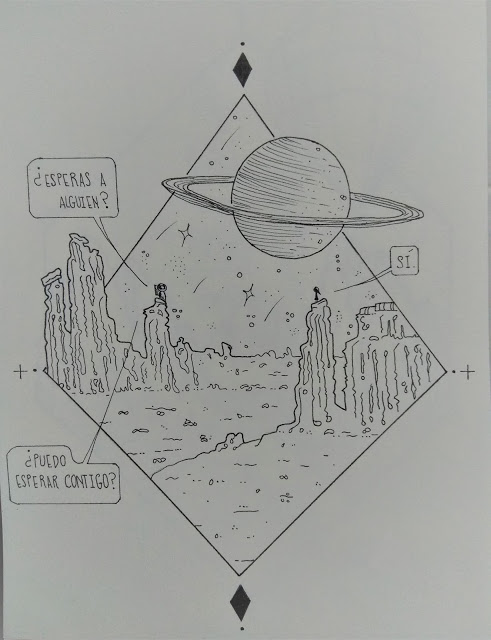 ¿ESPERAS A
ALGUIEN?
SI.
¿PUEDO
ESPERAR CONTIGO?